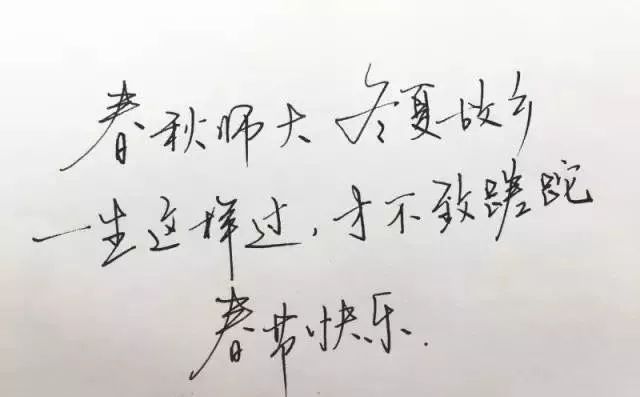 春秋师大 冬夏故乡
一生这样过，才不致蹉跎
春节快乐.